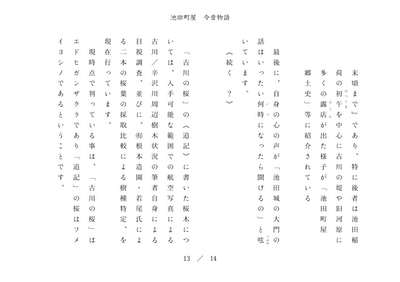 池田町屋　今昔物語
末頃まで」であり、特に後者は池田稲
荷の初午を中心に古川の堤や旧河原に
多くの露店が出た様子が「池田町屋
郷土史」等に紹介されている
最後に、自身の心の声が「池田城の大門の
話はいったい何時になったら開けるの」と呟
いています。
《続く　？》
「古川の桜」の《追記》に書いた桜木につ
いては、入手可能な範囲での航空写真による
古川／辛沢川周辺樹木状況の筆者自身による
目視調査、並びに、㈲根本造園・若尾氏によ
る二本の桜葉の採取比較による樹種特定、を
現在行っています。
現時点で判っている事は、「古川の桜」は
エドヒガンザクラであり「追記」の桜はソメ
イヨシノであるということです。
13　／　14